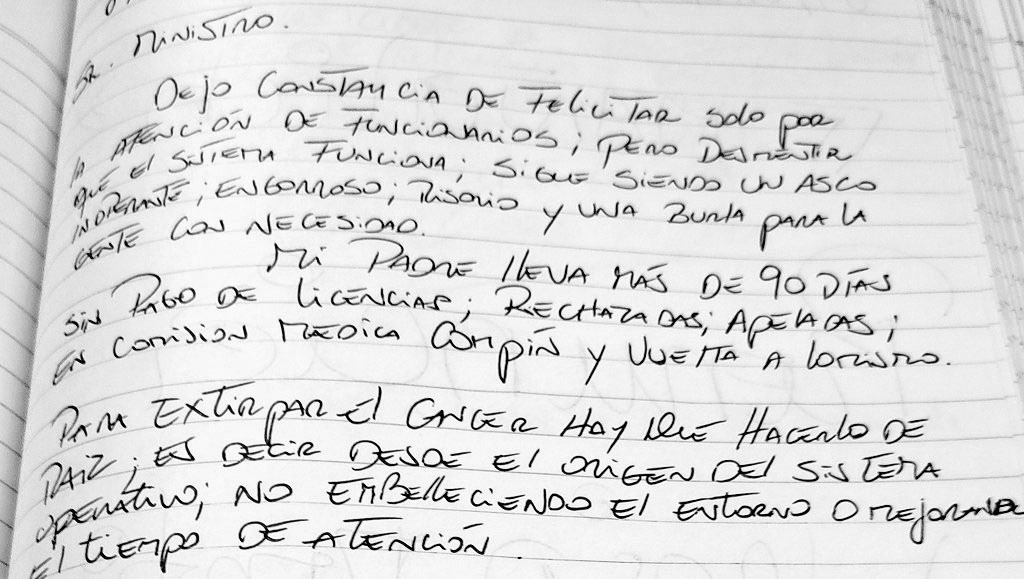 SR. MINISTRO.
DEJO CONSTANCIA DE FELICITAR SOLO POR
LA ATENCIÓN DE FUNCIONARIOS; PERO DESMENTIR
QUE EL SISTEMA FUNCIONA; SIGUE SIENDO UN ASCO
INOPERANTE; ENGORROSO; RISORIO Y UNA BURLA PARA LA
GENTE CON NECESIDAD.
MI PADRE LLEVA MÁS DE 90 DÍAS
SIN PAGO DE LICENCIAS; RECHAZADAS; APELADAS;
EN COMISION MEDICA COMPIN Y VUELTA A LO MISMO.
PARA EXTIRPAR EL CANCER HAY QUE HACERLO DE
RAIZ; ES DECIR DESDE EL ORIGEN DEL SISTEMA
OPERATIVO; NO EMBELLECIENDO EL ENTORNO O MEJORANDO
EL TIEMPO DE ATENCIÓN.